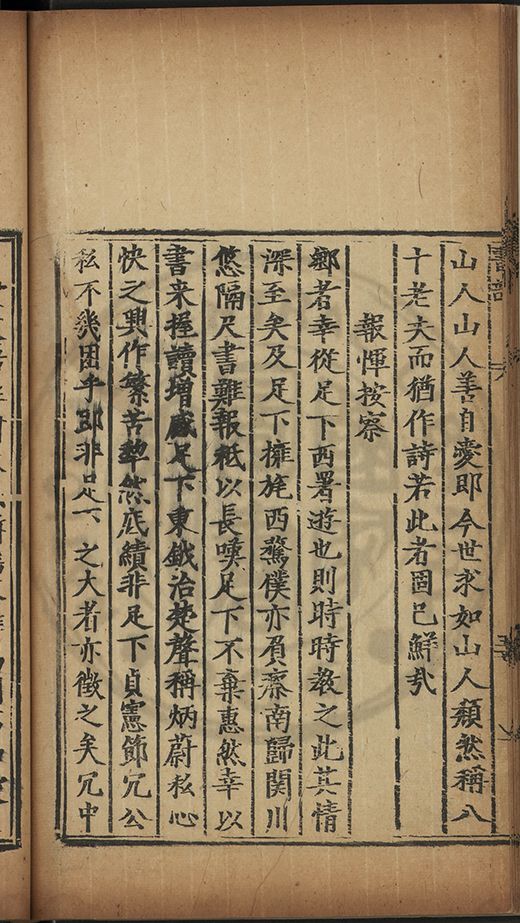 山人山人善自愛即今世求如山人頹然稱八
十老夫而猶作詩若此者固已鮮哉
報惲按察
鄉者幸從足下西署遊也則時時教之此其情
深至矣及足下擁旄西驁僕亦負痾南歸関川
悠隔尺書難報秪以長嘆足下不棄惠然幸以
書来握讀增感足下東鉞治楚聲稱炳蔚私心
快之興作繁苦犂然底績非足下貞憲飾冗公
私不幾困乎即非足下之大者亦徵之矣冗中